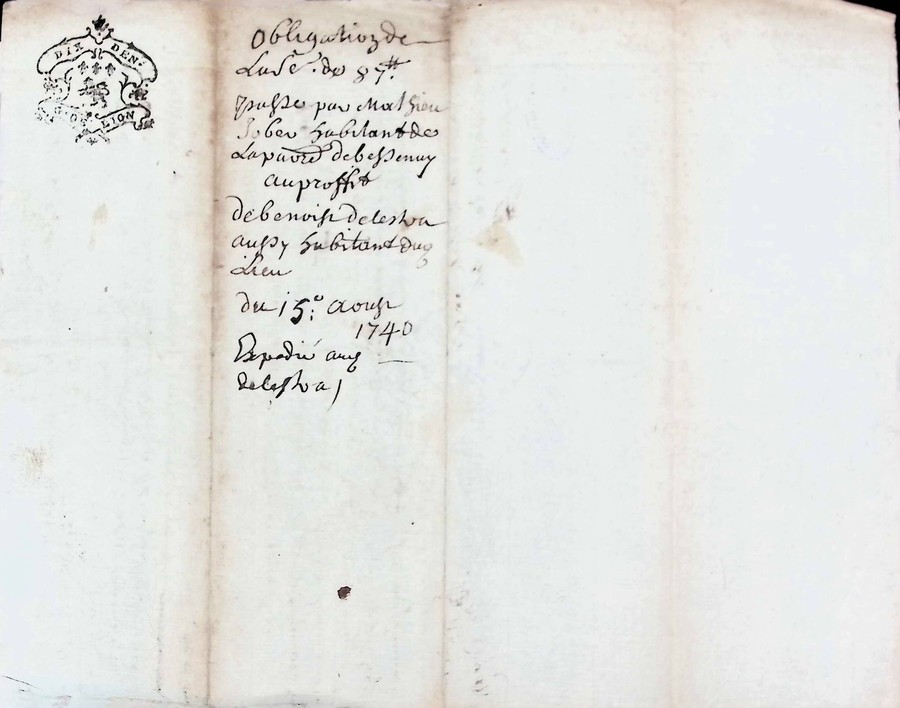 DIX DEN.
G. DE LION
Obligation de
La Se. de 87 ₶.
passe par Mathieu
Jober habitant de
La parr debessenay
au proffit
de benoist delestra
aussy habitant dud
Lieu
du 15e. aoust
1740
Expedié aud
delestra